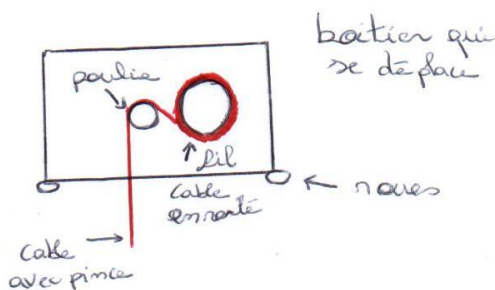 boîtier qui
se déplace
poulie
fil
cable
enroulé
roues
cable
avec pince